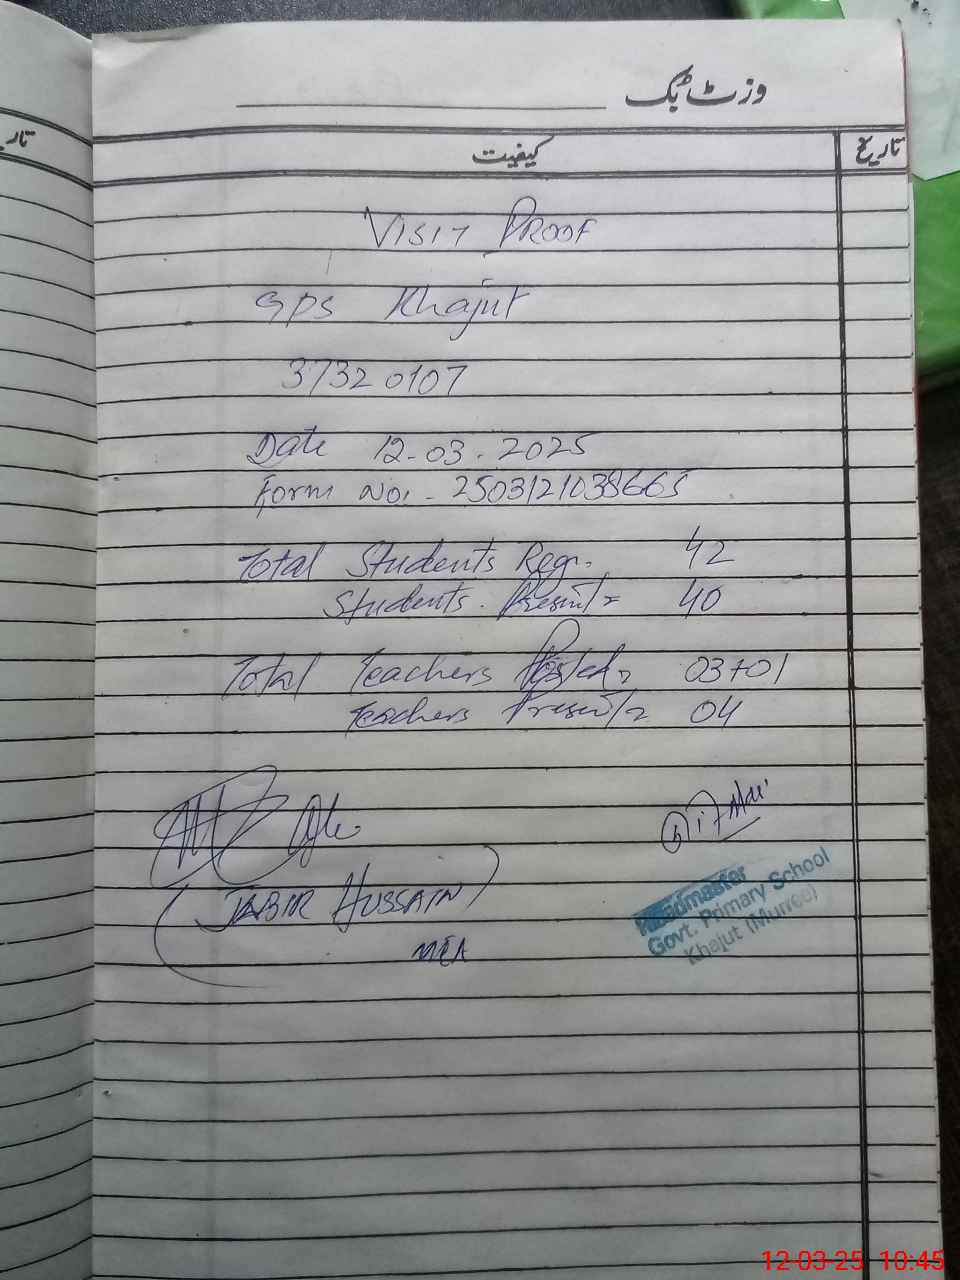 وزٹ بک
کیفیت
تاریخ
VISIT PROOF
GPS Khajut
37320107
Date 12-03-2025
Form No:- 2503121038665
Total Students Regr. 42
Students Present= 40
Total Teachers Posted= 03+01
Teachers Present= 04
(JABIR HUSSAIN)
MEA
Headmaster
Govt. Primary School
Khajut (Murree)
12-03-25 10:45